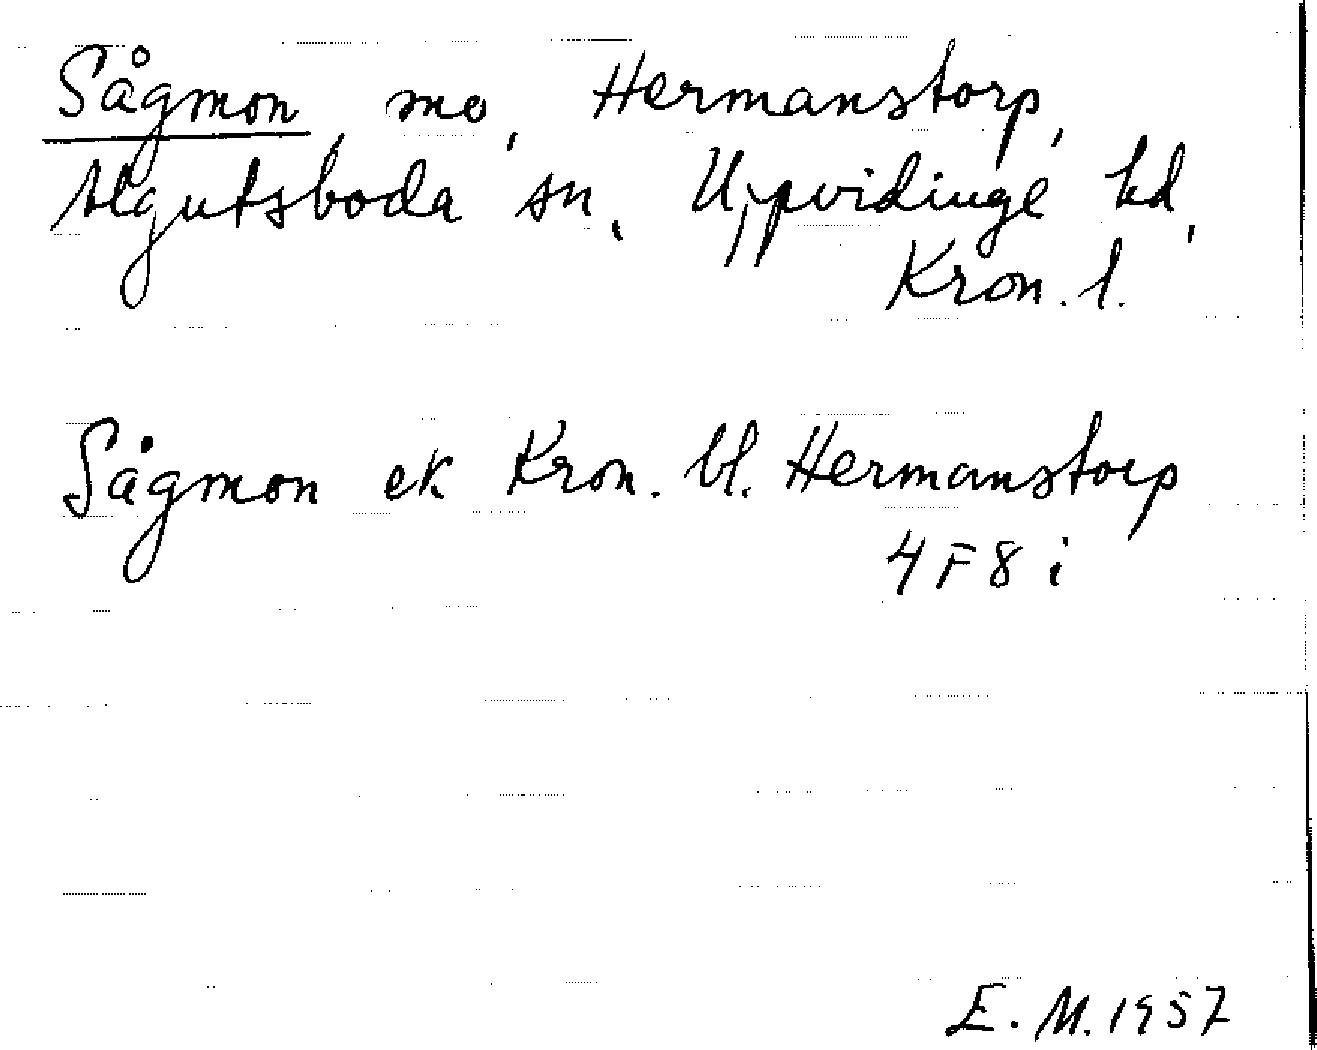 Sågmon mo, Hermanstorp,
Algutsboda sn, Uppvidinge hd,
Kron. l.
Sågmon ek Kron. bl. Hermanstorp
4 F 8 i
E. M. 1957